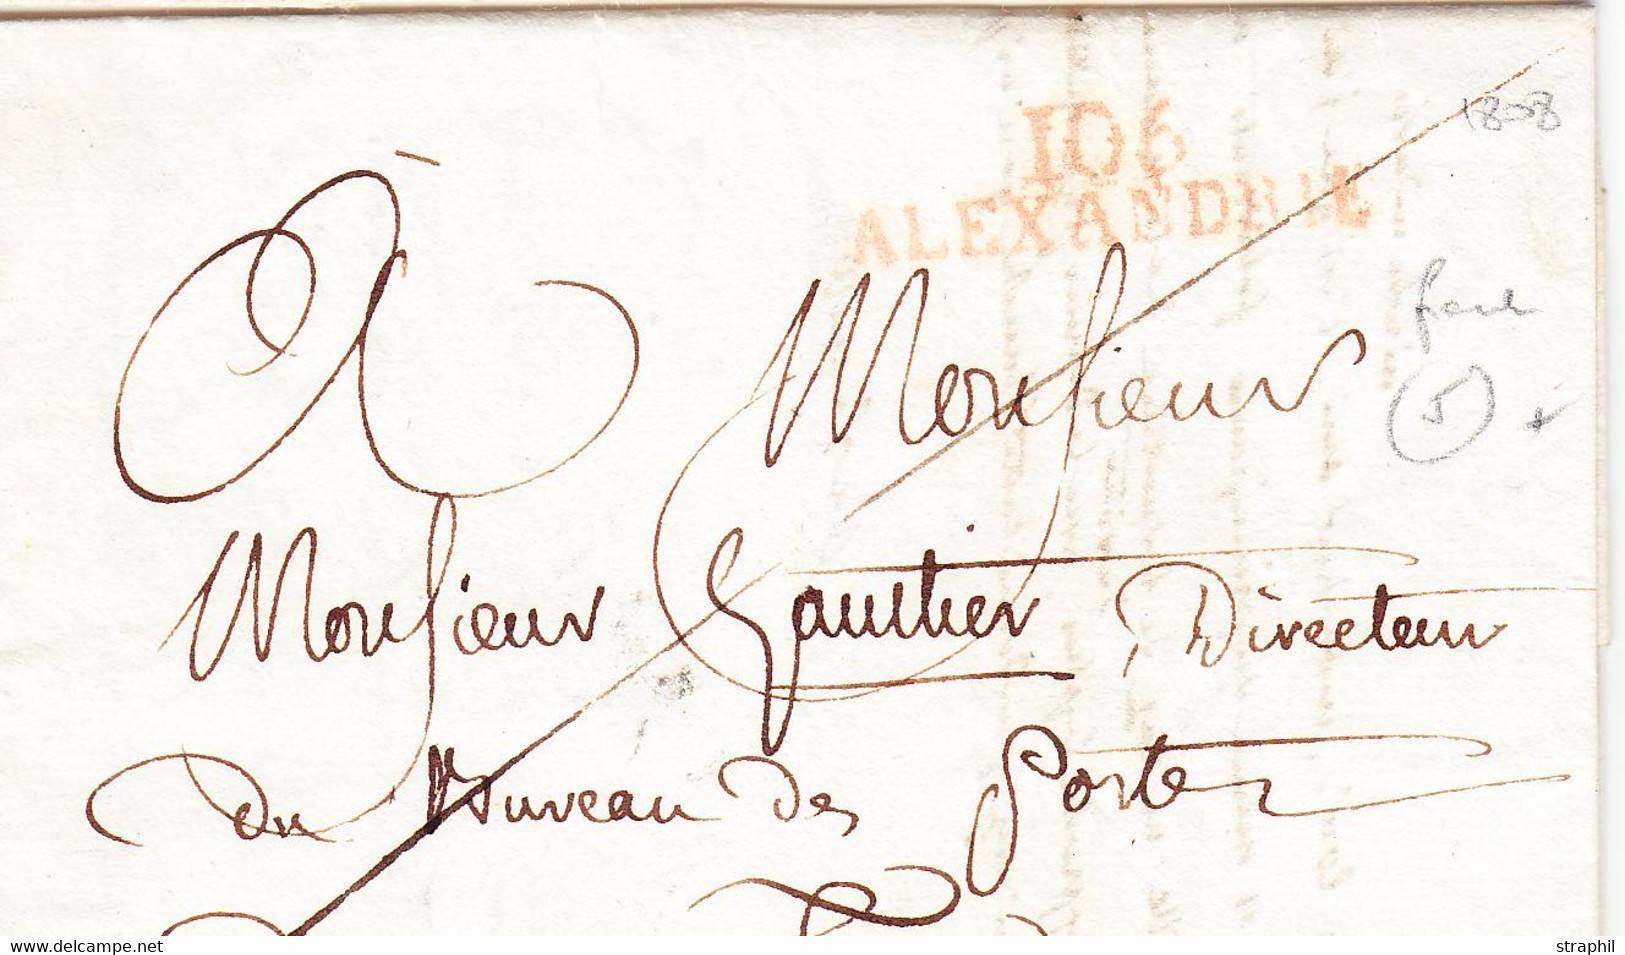 1808
106
ALEXANDRIE
À Monsieur
5
Monsieur Gaultier, Directeur
Du Bureau des Postes
www.delcampe.net
straphil